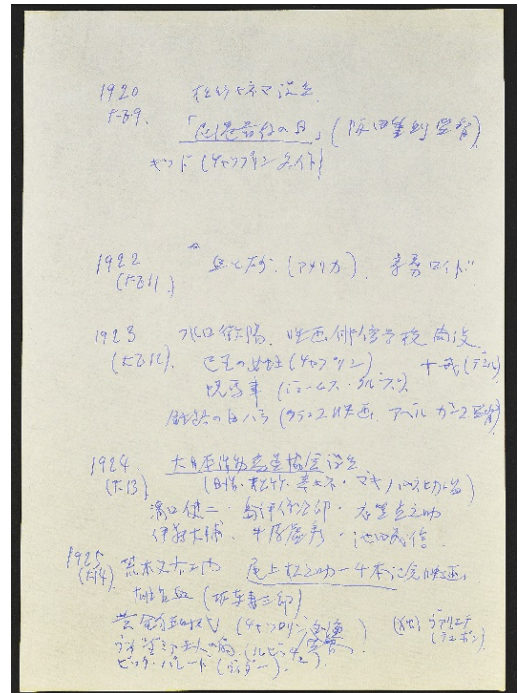 1920 松竹キネマ設立
大正9.
の日」(
キッド (チャップリン 名作)
1922 血と砂. (アメリカ) ロイド
(大正11)
1923 水口薇陽. 映画俳優学校 開設
(大正12). 巴里の女性 (チャップリン) 十戒 (デミル)
幌馬車 (ジェームス・クルーズ)
鉄路の白バラ (フランス映画. アベル ガンス監督)
1924 大日本活動写真協会 設立
(大13) (日活・松竹・
溝口健二・島津保次郎・衣笠貞之助
伊藤大輔・牛原虚彦・池田義信
1925 荒木又右エ門 尾上松之助一千本記念映画.
(大14) 雄呂血 (坂東妻三郎)
黄金狂時代 (チャップリン
(独) ヴァリエテ
(デュポン)
ウィンダミア夫人の扇 (ルビッチ
ビッグ・パレード (ヴィダー).